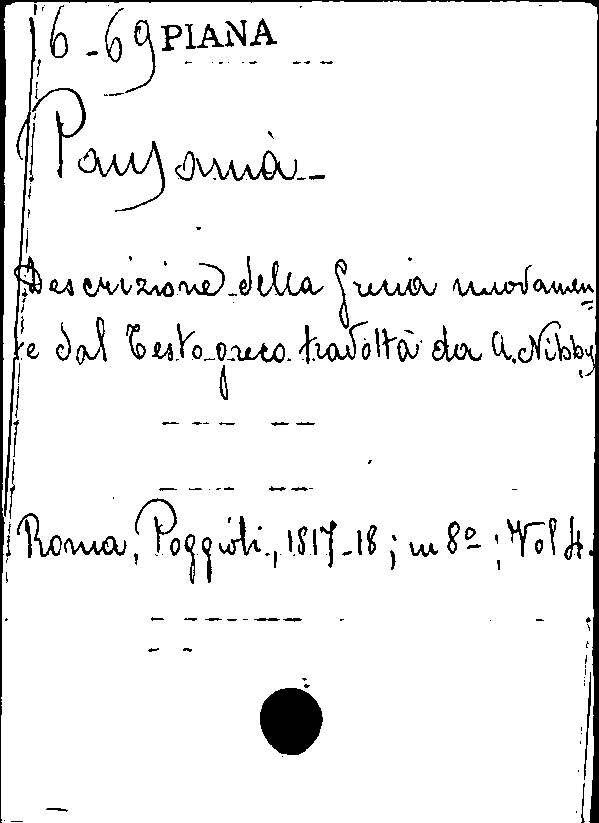 16-69 PIANA
Pausania
Descrizione della Grecia nuovamen=
te dal Testo greco tradotta da A. Nibby
Roma, Poggioli, 1817-18; in 8º; Vol 4.